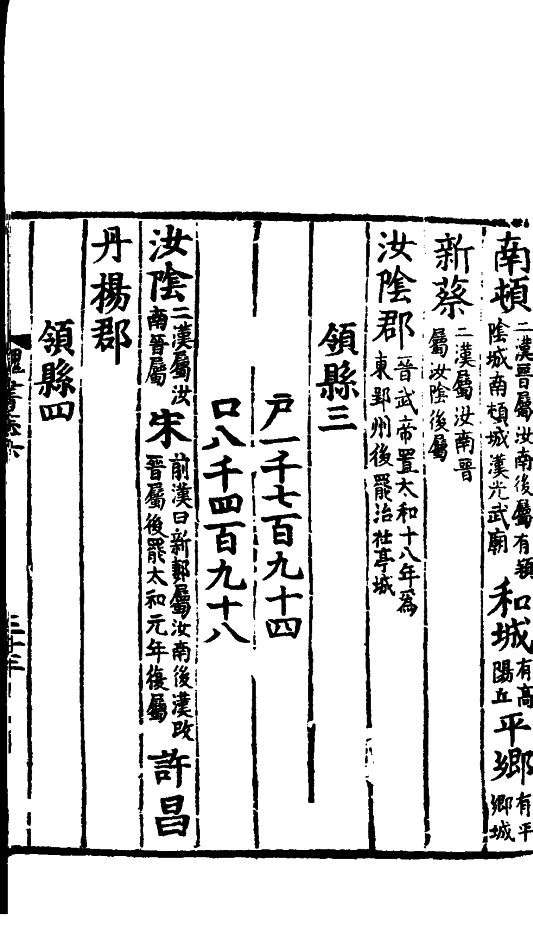 南頓二漢晉屬汝南後屬有潁陰城南頓城漢光武廟和城有高陽丘平鄉有平鄉城
新蔡二漢屬汝南晉屬汝陰後屬
汝陰郡晉武帝置太和十八年為東郢州後罷治社亭城
領縣三
戶一千七百九十四
口八千四百九十八
汝陰二漢屬汝南晉屬宋前漢曰新郪屬汝南後漢改晉屬後罷太和元年復屬許昌
丹楊郡
領縣四